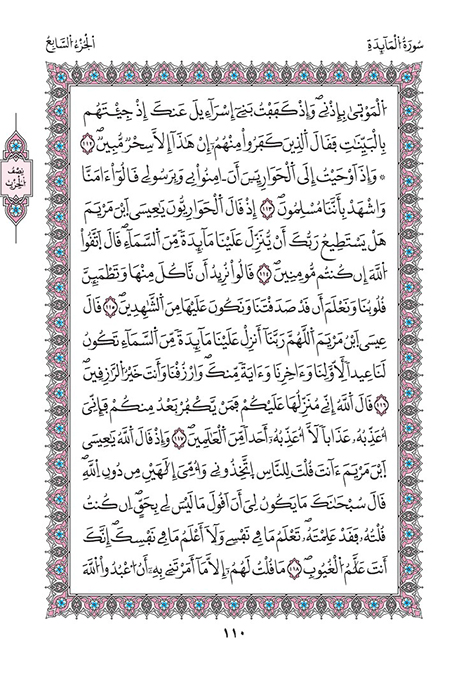 سُورَةُ الْمَآئِدَةِ
الْجُزْءُ السَّابِعُ
نِصْفُ
الْحِزْبِ
اَ۬لْمَوْتٜيٰ بِإِذْنِےۖ وَإِذْ كَفَفْتُ بَنِےٓ إِسْرَآءِيلَ عَنكَ إِذْ جِئْتَهُم
بِالْبَيِّنَٰتِ فَقَالَ اَ۬لذِينَ كَفَرُواْ مِنْهُمُۥٓ إِنْ هَٰذَآ إِلَّا سِحْرٞ مُّبِينٞۖ ١١٢
۞ وَإِذَ اَوْحَيْتُ إِلَى اَ۬لْحَوَارِيِّـۧنَ أَنَ اٰمِنُواْ بِے وَبِرَسُولِے قَالُوٓاْ ءَامَنَّا
وَاشْهَدْ بِأَنَّنَا مُسْلِمُونَۖ ١١٣ إِذْ قَالَ اَ۬لْحَوَارِيُّونَ يَٰعِيسَى اَ۪بْنَ مَرْيَمَ
هَلْ يَسْتَطِيعُ رَبُّكَ أَنْ يُّنَزِّلَ عَلَيْنَا مَآئِدَةٗ مِّنَ اَ۬لسَّمَآءِۖ قَالَ اَ۪تَّقُواْ
اُ۬للَّهَ إِن كُنتُم مُّومِنِينَۖ ١١٤ قَالُواْ نُرِيدُ أَن نَّاكُلَ مِنْهَا وَتَطْمَئِنَّ
قُلُوبُنَا وَنَعْلَمَ أَن قَدْ صَدَقْتَنَا وَنَكُونَ عَلَيْهَا مِنَ اَ۬لشَّٰهِدِينَۖ ١١٥ قَالَ
عِيسَى اَ۪بْنُ مَرْيَمَ اَ۬للَّهُمَّ رَبَّنَآ أَنزِلْ عَلَيْنَا مَآئِدَةٗ مِّنَ اَ۬لسَّمَآءِ تَكُونُ
لَنَا عِيداٗ لِّأَوَّلِنَا وَءَاخِرِنَا وَءَايَةٗ مِّنكَۖ وَارْزُقْنَا وَأَنتَ خَيْرُ اُ۬لرَّٰزِقِينَۖ
١١٦ قَالَ اَ۬للَّهُ إِنِّے مُنَزِّلُهَا عَلَيْكُمْۖ فَمَنْ يَّكْفُرْ بَعْدُ مِنكُمْ فَإِنِّيَ
أُعَذِّبُهُۥ عَذَاباٗ لَّآ أُعَذِّبُهُۥٓ أَحَداٗ مِّنَ اَ۬لْعَٰلَمِينَۖ ١١٧ وَإِذْ قَالَ اَ۬للَّهُ يَٰعِيسَى
اَ۪بْنَ مَرْيَمَ ءَآنتَ قُلْتَ لِلنَّاسِ اِ۪تَّخِذُونِے وَأُمِّيَ إِلَٰهَيْنِ مِن دُونِ اِ۬للَّهِۖ
قَالَ سُبْحَٰنَكَ مَا يَكُونُ لِيَ أَنَ اَقُولَ مَا لَيْسَ لِے بِحَقٍّۖ اِن كُنتُ
قُلْتُهُۥ فَقَدْ عَلِمْتَهُۥۖ تَعْلَمُ مَا فِے نَفْسِے وَلَآ أَعْلَمُ مَا فِے نَفْسِكَۖ إِنَّكَ
أَنتَ عَلَّٰمُ اُ۬لْغُيُوبِۖ ١١٨ مَا قُلْتُ لَهُمُۥٓ إِلَّا مَآ أَمَرْتَنِے بِهِۦٓ أَنُ اُ۟عْبُدُواْ اُ۬للَّهَ
١١٠